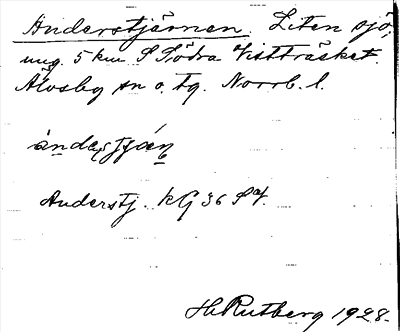 Anderstjärnen. Liten sjö,
ung. 5 km S Södra Vistträsket.
Älvsby sn o. tg. Norrb. l.
Anderstj. kG 36 SV.
H Rutberg 1928.